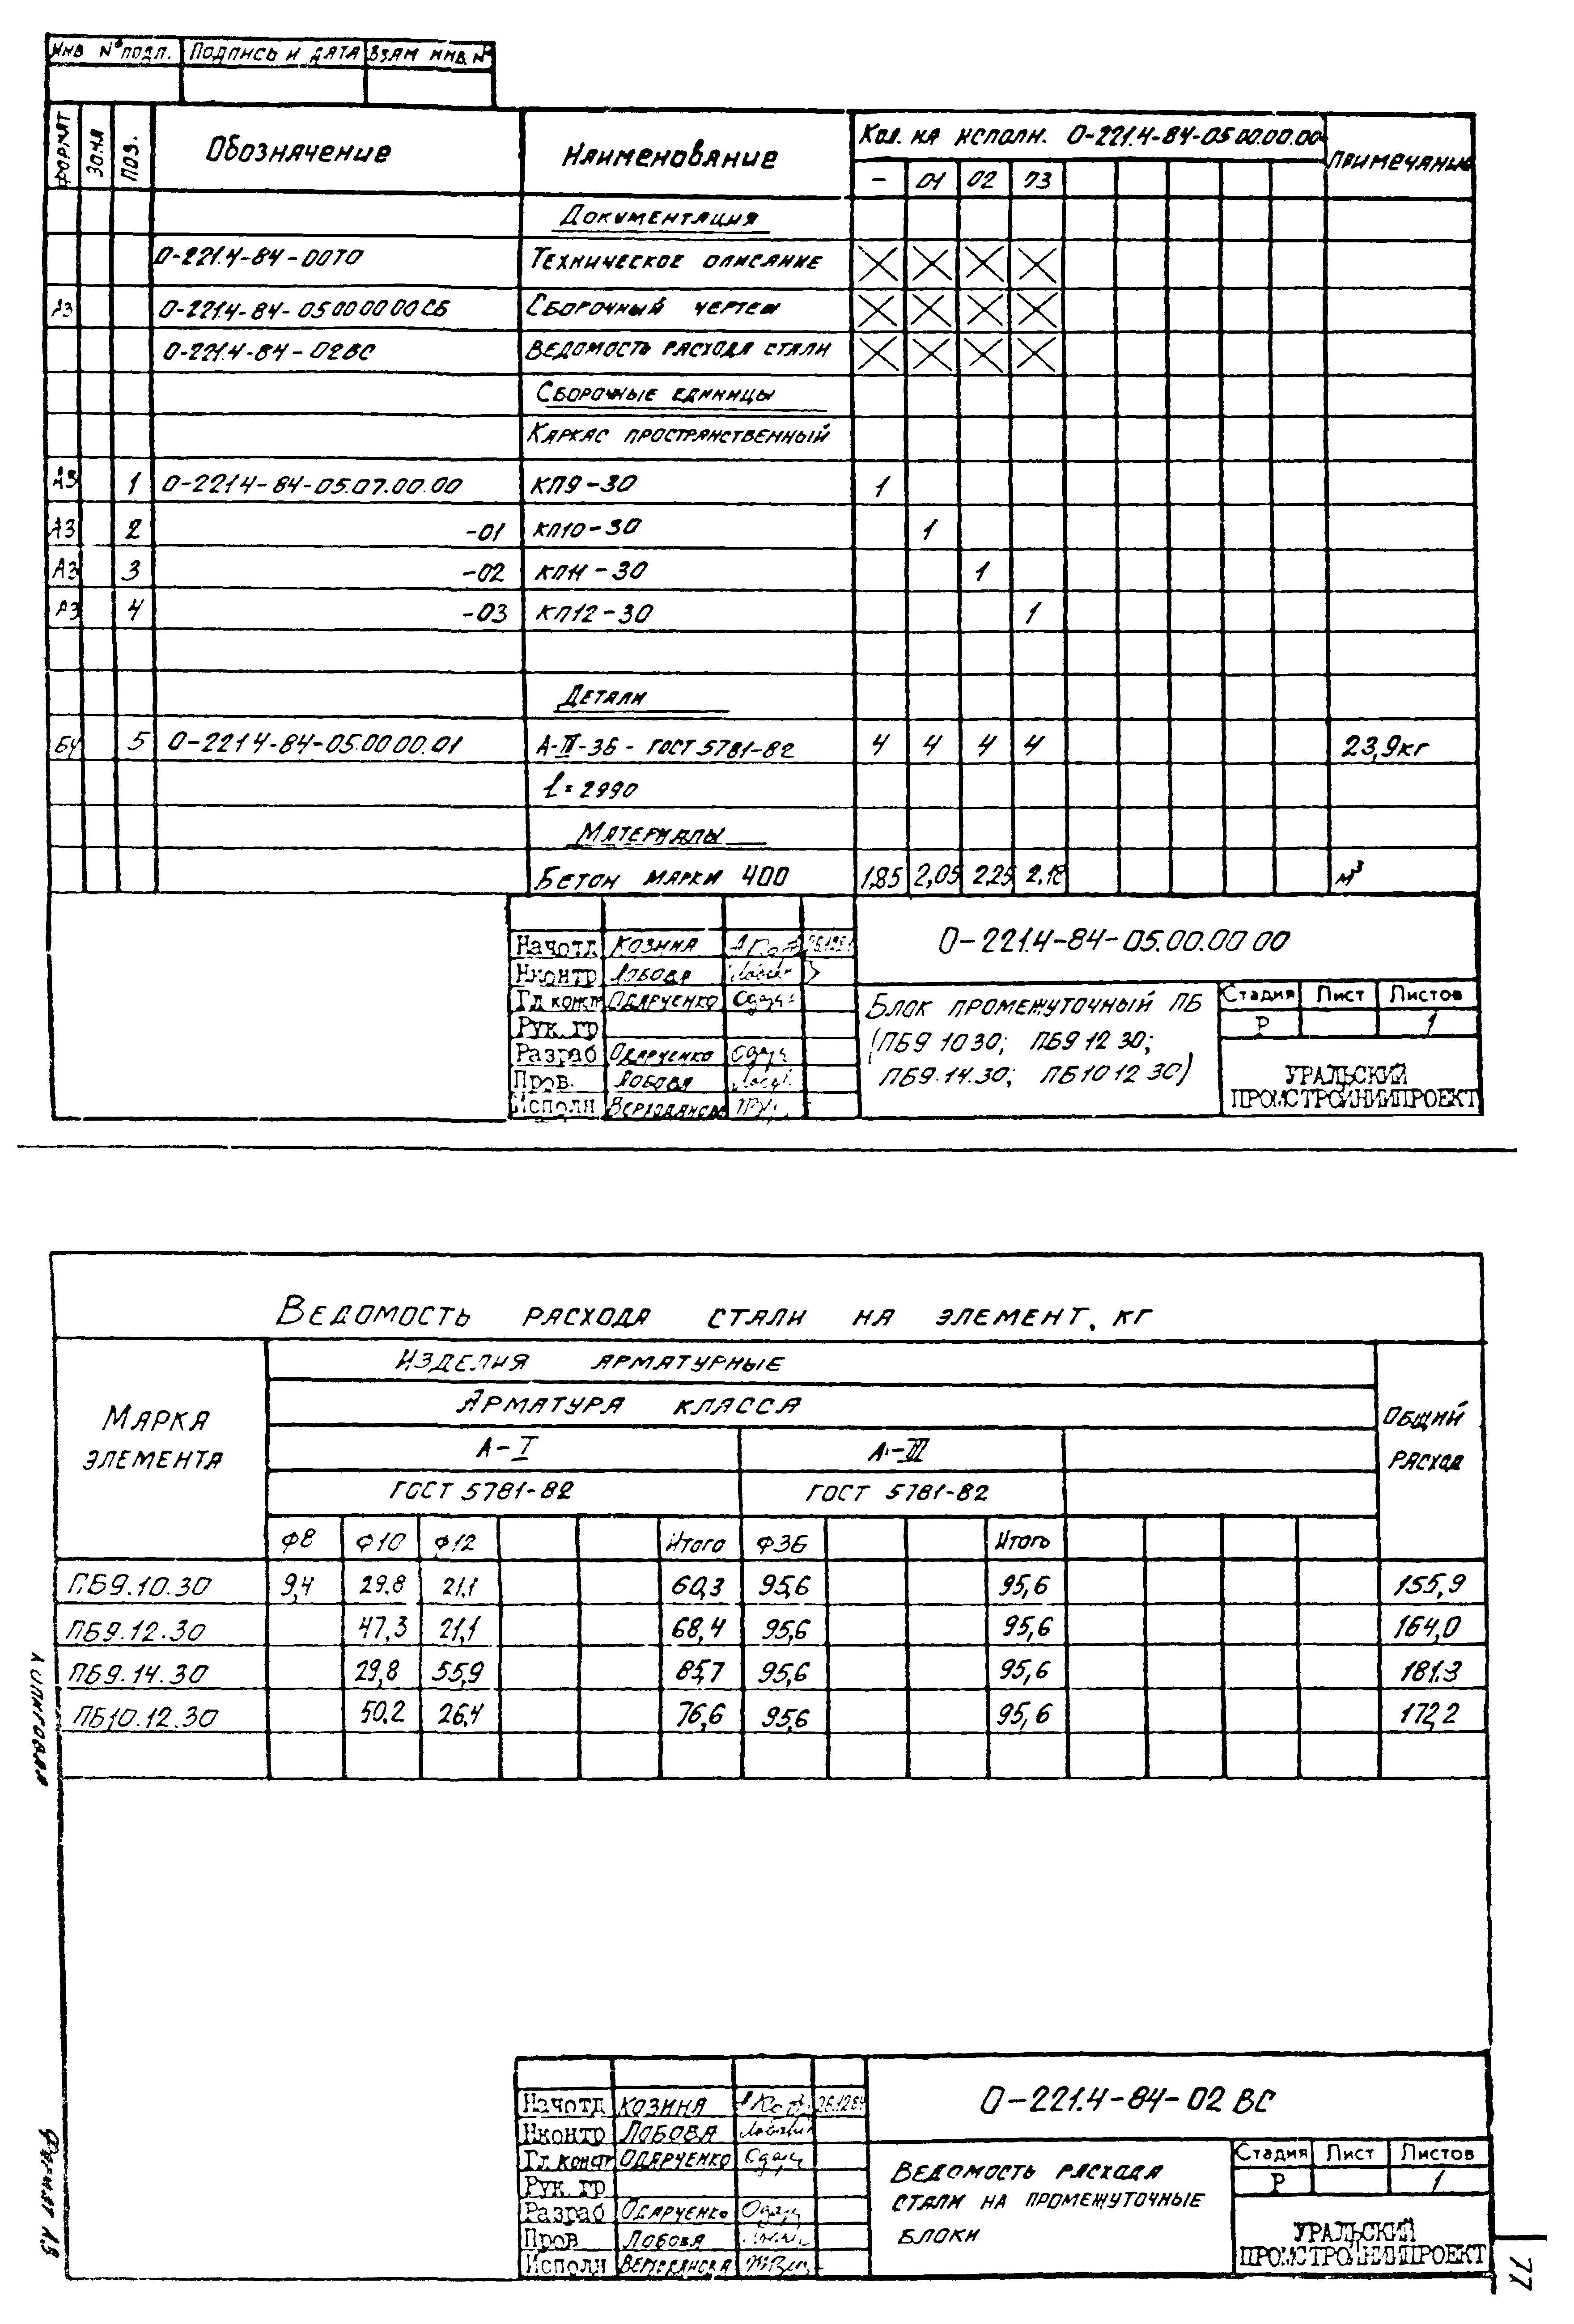 Инв № подл. Подпись и дата Взам инв. №
Формат Зона Поз. Обозначение Наименование Кол. на исполн. О-221.4-84-05.00.00.00 Примечание
- 01 02 03
Документация
О-221.4-84-00ТО Техническое описание
А3 О-221.4-84-05.00.00.00СБ Сборочный чертеж
О-221.4-84-02ВС Ведомость расхода стали
Сборочные единицы
Каркас пространственный
А3 1 О-221.4-84-05.07.00.00 КП9-30 1
А3 2 -01 КП10-30 1
А3 3 -02 КП11-30 1
А3 4 -03 КП12-30 1
Детали
БЧ 5 О-221.4-84-05.00.00.01 А-III-36-ГОСТ 5781-82 4 4 4 4 23,9кг
ℓ=2990
Материалы
Бетон марки 400 1,85 2,05 2,25 2,18 м³
Нач отд Козина
О-221.4-84-05.00.00.00
Н контр Лобова
Гл констр Одарченко
Рук. гр
Разраб Одарченко
Пров. Лобова
Исполн
Блок промежуточный ПБ
(ПБ9.10.30; ПБ9.12.30;
ПБ9.14.30; ПБ10.12.30)
Стадия Лист Листов
Р 1
УРАЛЬСКИЙ
ПРОМСТРОЙНИИПРОЕКТ
Ведомость расхода стали на элемент, кг
Марка элемента Изделия арматурные Общий расход
Арматура класса
А-I А-III
ГОСТ 5781-82 ГОСТ 5781-82
Ф8 Ф10 Ф12 Итого Ф36 Итого
ПБ9.10.30 9,4 29,8 21,1 60,3 95,6 95,6 155,9
ПБ9.12.30 47,3 21,1 68,4 95,6 95,6 164,0
ПБ9.14.30 29,8 55,9 85,7 95,6 95,6 181,3
ПБ10.12.30 50,2 26,4 76,6 95,6 95,6 172,2
Копировал
Формат А3
Нач отд Козина 26.12.84
О-221.4-84-02 ВС
Н контр Лобова
Гл констр Одарченко
Рук. гр
Разраб Одарченко
Пров Лобова
Исполн
Ведомость расхода
стали на промежуточные
блоки
Стадия Лист Листов
Р 1
УРАЛЬСКИЙ
ПРОМСТРОЙНИИПРОЕКТ
77